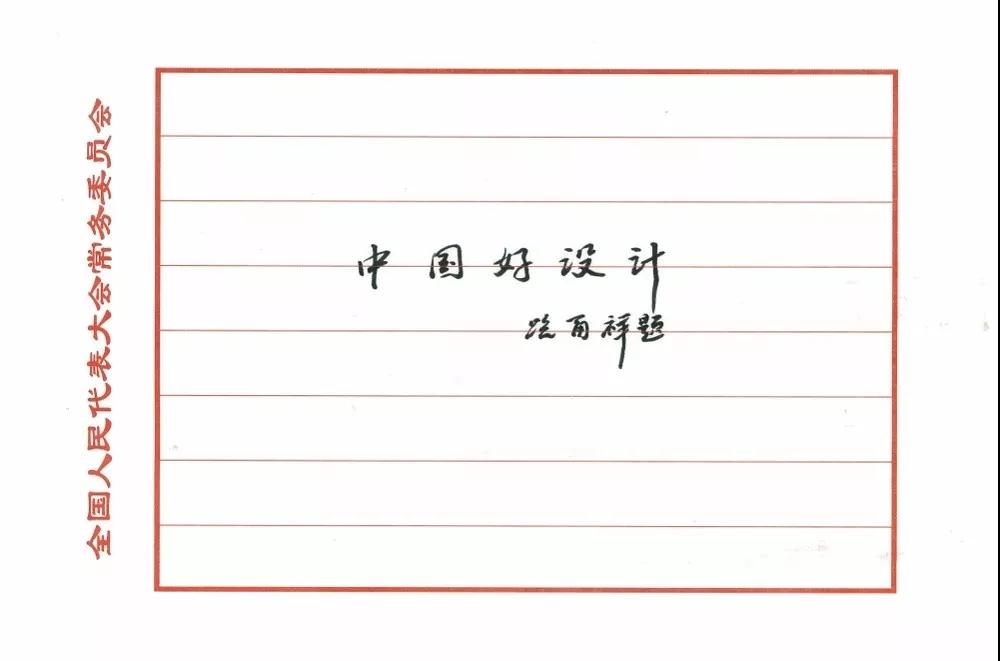 全国人民代表大会常务委员会
中国好设计
路甬祥题